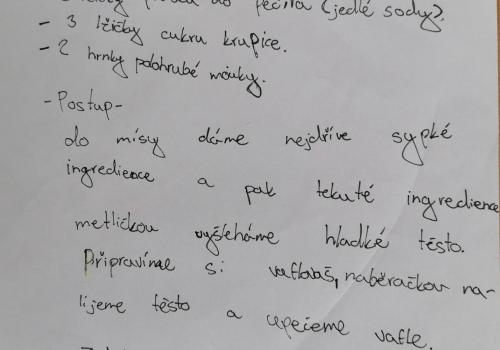 do pečiva (jedlé sody).
- 3 lžičky cukru krupice.
- 2 hrnky polohrubé mouky.
-Postup-
do mísy dáme nejdříve sypké
ingredience a pak tekuté ingredience
metličkou vyšleháme hladké těsto.
Připravíme si vaflovač, naběračkou na-
lijeme těsto a upečeme vafle.